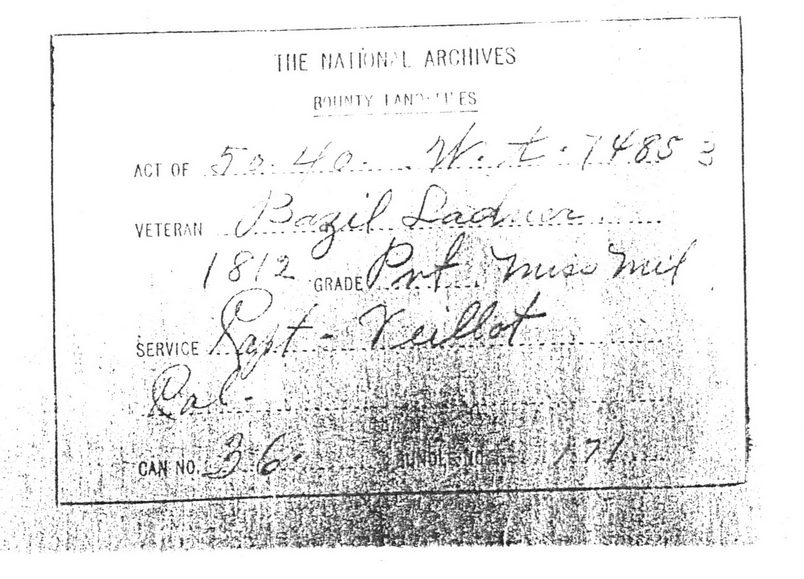 THE NATIONAL ARCHIVES
BOUNTY LAND FILES
ACT OF 50-40- W.t. 74853
VETERAN Bazil Ladner
1812 GRADE Pvt Miss Mil
SERVICE Capt - Veillot
CAN NO. 36. BUNDLE NO. 171